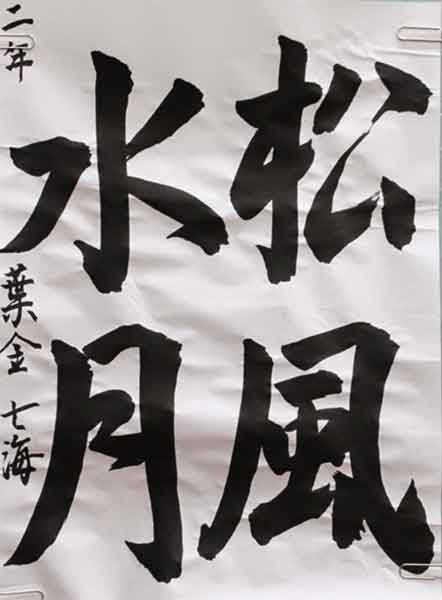 松風
水月
二年 葉金 七海